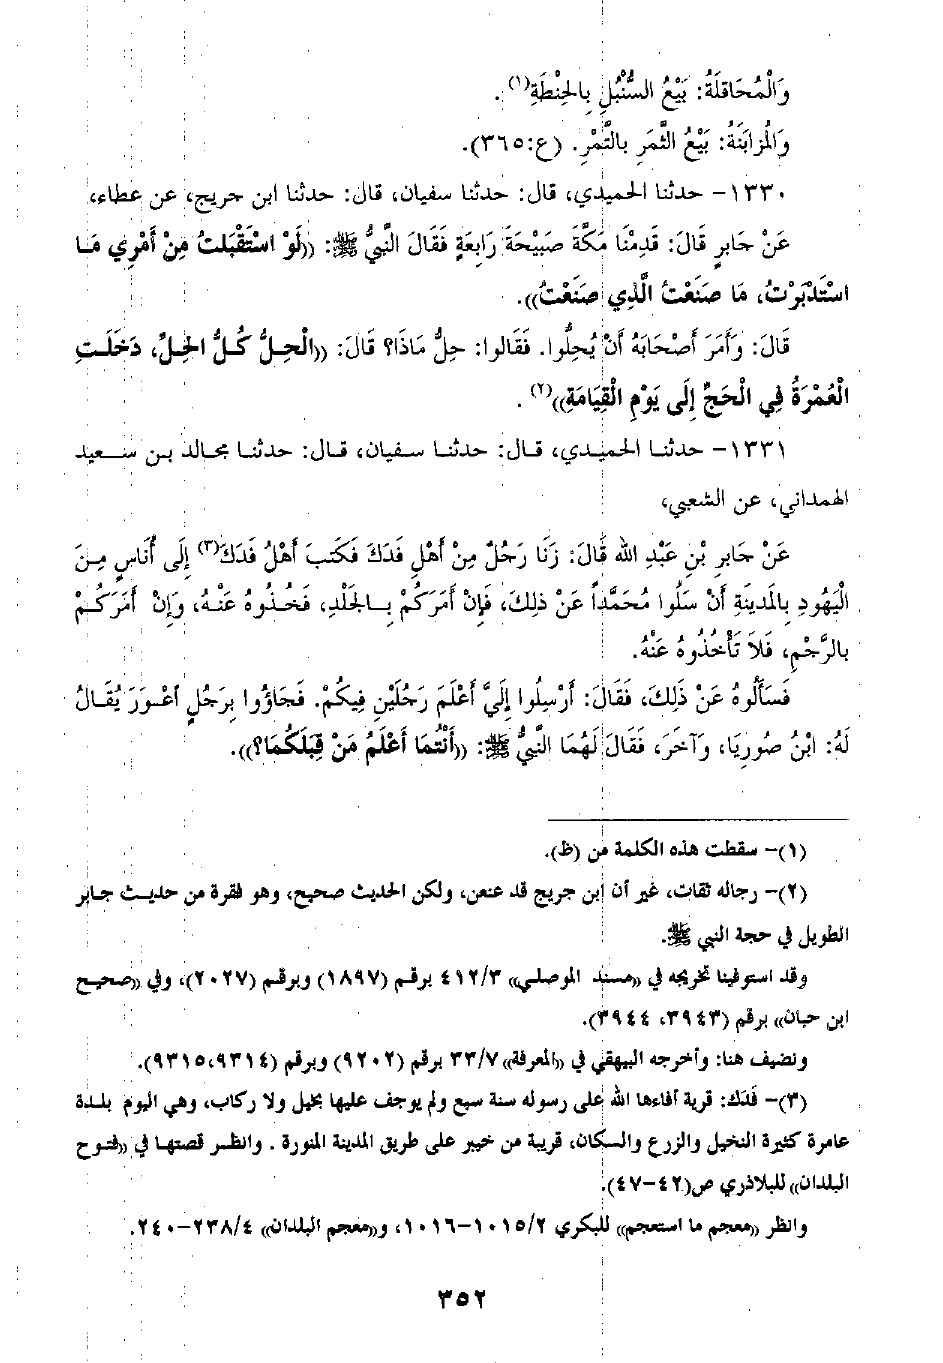 وَالْمُحَاقَلَةُ: بَيْعُ السُّنْبُلِ بِالْحِنْطَةِ(١).
وَالْمُزابَنَةُ: بَيْعُ الثَّمَرِ بالتَّمْرِ. (ع:٣٦٥).
١٣٣٠- حدثنا الحميدي، قال: حدثنا سفيان، قال: حدثنا ابن جريج، عن عطاء،
عَنْ جَابرٍ قَالَ: قَدِمْنَا مَكَّةَ صَبِيْحَةَ رَابِعَةٍ فَقَالَ النَّبِيُّ ﷺ: ((لَوْ اسْتَقْبَلتُ مِنْ أَمْرِي مَا
اسْتَدْبَرْتُ، مَا صَنَعْتُ الَّذِي صَنَعْتُ)).
قَالَ: وَأَمَرَ أَصْحَابَهُ أَنْ يُحِلُّوا. فَقَالوا: حِلُّ مَاذَا؟ قَالَ: ((الْحِلُّ كُلُّ الحِلِّ، دَخَلَتِ
الْعُمْرَةُ فِي الْحَجِّ إِلَى يَوْمِ الْقِيَامَةِ))(٢).
١٣٣١- حدثنا الحميدي، قال: حدثنا سفيان، قال: حدثنا مجالد بن سعيد
الهمداني، عن الشعبي،
عَنْ جَابِرِ بْنِ عَبْدِ الله قَالَ: زَنَا رَجُلٌ مِنْ أَهْلِ فَدَكَ فَكَتَبَ أَهْلُ فَدَكَ(٣) إِلَى أُنَاسٍ مِنَ
الْيَهُودِ بِالمَدينَةِ أَنْ سَلُوا مُحَمَّداً عَنْ ذلِكَ، فَإِنْ أَمَرَكُمْ بِالجَلْدِ، فَخُذُوهُ عَنْهُ، وَإِنْ أَمَرَكُمْ
بالرَّجْمِ، فَلاَ تَأْخُذُوهُ عَنْهُ.
فَسَأَلُوهُ عَنْ ذلِكَ، فَقَالَ: أَرْسِلُوا إِلَيَّ أَعْلَمَ رَجُلَيْنِ فِيكُمْ. فَجَاؤُوا بِرَجُلٍ أعْوَرَ يُقَالُ
لَهُ: ابْنُ صُورِيَا، وَآخَرَ، فَقَالَ لَهُمَا النَّبِيُّ ﷺ: ((أَنْتُمَا أَعْلَمُ مَنْ قِبَلَكُمَا؟)).
(١)- سقطت هذه الكلمة من (ظ).
(٢)- رجاله ثقات، غير أن ابن جريج قد عنعن، ولكن الحديث صحيح، وهو فقرة من حديث جابر
الطويل في حجة النبي ﷺ.
وقد استوفينا تخريجه في ((مسند الموصلي)) ٤١٢/٣ برقم (١٨٩٧) وبرقم (٢٠٢٧)، وفي ((صحيح
ابن حبان)) برقم (٣٩٤٣، ٣٩٤٤).
ونضيف هنا: وأخرجه البيهقي في ((المعرفة)) ٣٣/٧ برقم (٩٢٠٢) وبرقم (٩٣١٤،٩٣١٥).
(٣)- فَدَك: قرية أفاءها الله على رسوله سنة سبع ولم يوجف عليها بخيل ولا ركاب، وهي اليوم بلدة
عامرة كثيرة النخيل والزرع والسكان، قريبة من خيبر على طريق المدينة المنورة . وانظر قصتها في ((فتوح
البلدان)) للبلاذري ص(٤٢-٤٧).
وانظر ((معجم ما استعجم)) للبكري ١٠١٥/٢-١٠١٦، و((معجم البلدان)) ٢٣٨/٤-٢٤٠.
٣٥٢